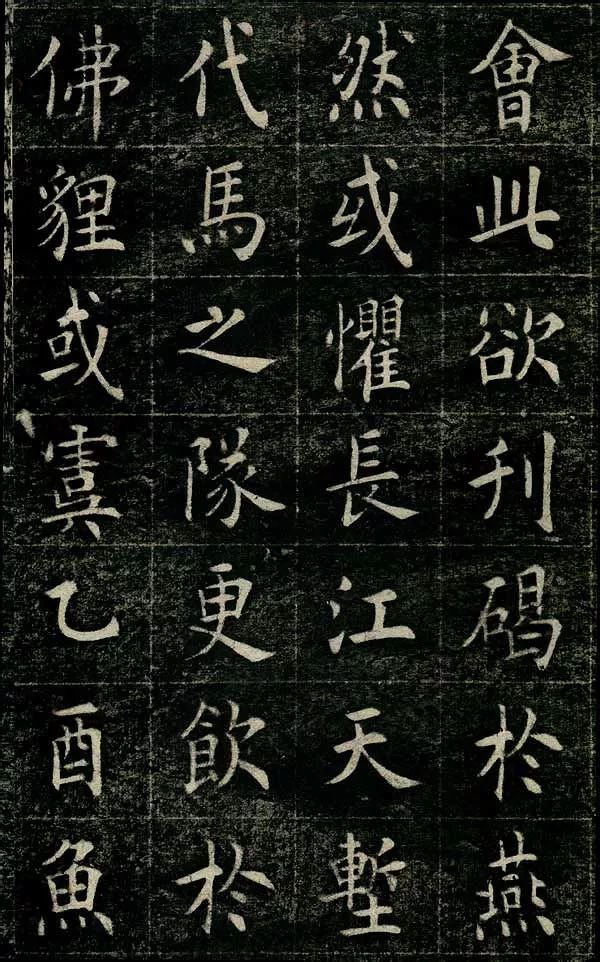 會此欲刊碣於燕
然或懼長江天塹
代馬之隊更飲於
佛貍或虞乙酉魚